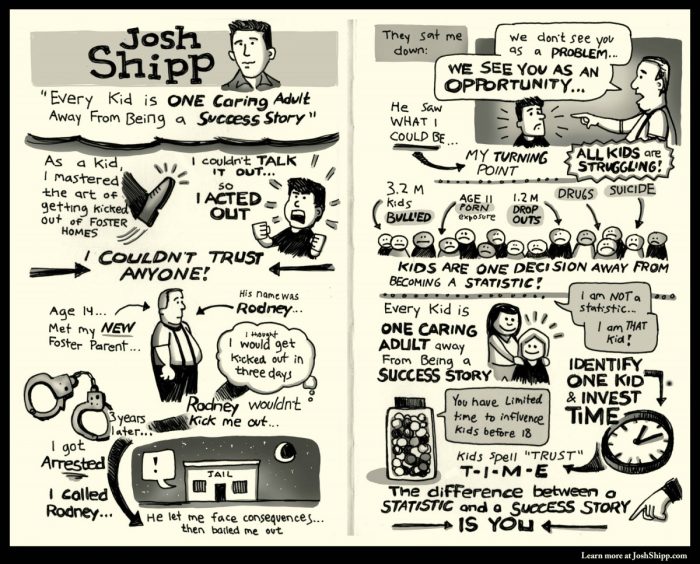 Josh
Shipp
"Every Kid is ONE Caring Adult
Away From Being a Success Story"
As a kid,
I mastered
the art of
getting kicked
out of FOSTER
HOMES
I couldn't TALK
IT OUT...
SO
I ACTED
OUT
I COULDN'T TRUST
ANYONE!
Age 14...
Met my NEW
Foster Parent...
His name was
Rodney...
I thought
I would get
kicked out in
three days
Rodney wouldn't
kick me out...
3 years
later...
I got
Arrested
I called
Rodney...
!
JAIL
He let me face consequences...
then bailed me out
They sat me
down:
we don't see you
as a PROBLEM...
WE SEE YOU AS AN
OPPORTUNITY...
He saw
WHAT I
COULD BE...
MY TURNING
POINT
ALL KIDS are
STRUGGLING!
3.2 M
kids
BULLIED
AGE 11
PORN
exposure
1.2 M
DROP
OUTS
DRUGS
SUICIDE
KIDS ARE ONE DECISION AWAY FROM
BECOMING A STATISTIC!
Every Kid is
ONE CARING
ADULT away
From Being a
SUCCESS STORY
I am NOT a
statistic...
I am THAT
kid!
IDENTIFY
ONE KID
& INVEST
TIME
You have Limited
time to influence
kids before 18
Kids Spell "TRUST"
T-I-M-E
The difference between a
STATISTIC and a SUCCESS STORY
IS YOU
Learn more at JoshShipp.com